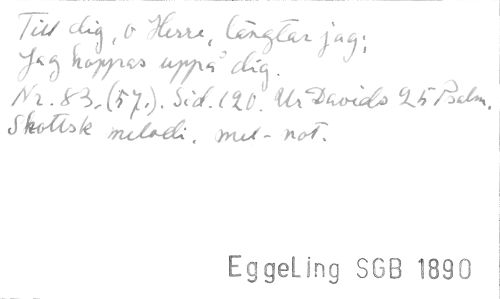 Till dig, o Herre, längtar jag;
Jag hoppas uppå dig.
Nr. 83. (57.). Sid. 120. Ur Davids 25 Psalm.
Skottsk melodi. mel-not.
EggeLing SGB 1890